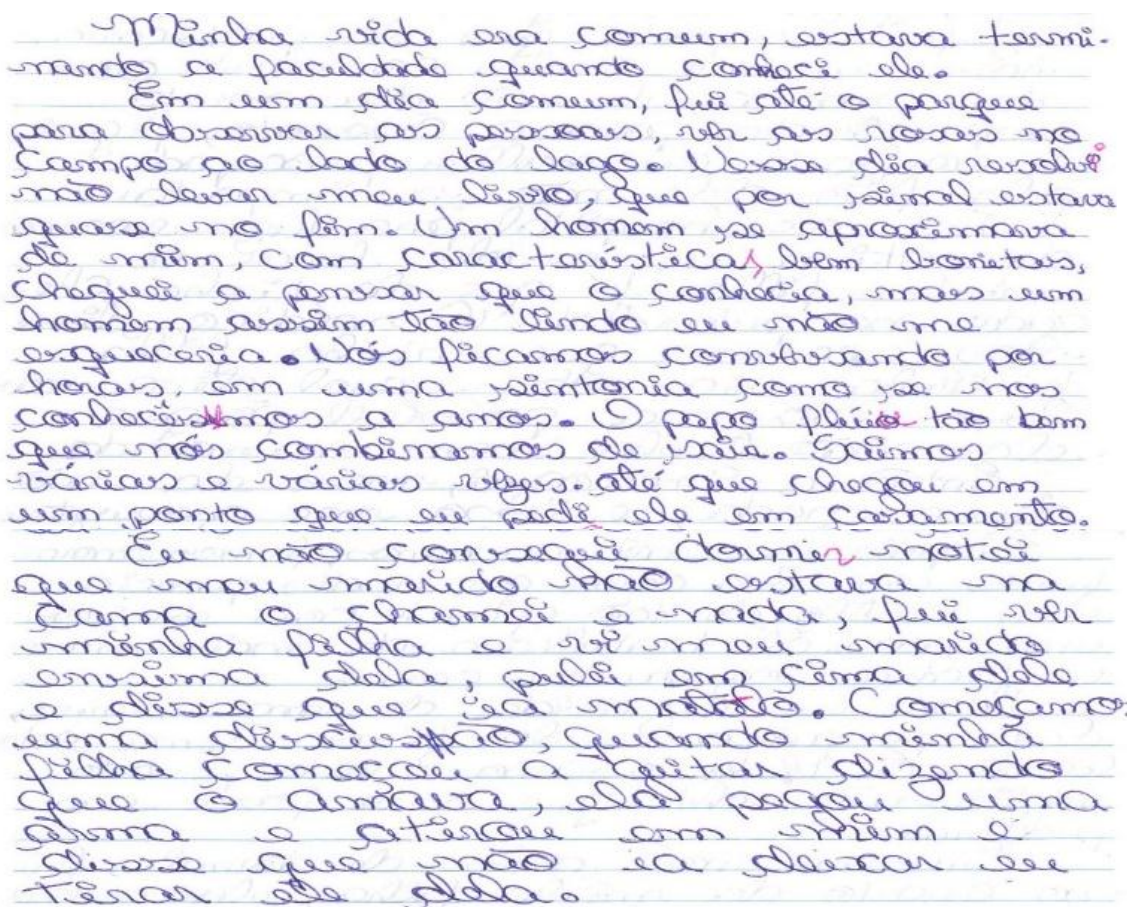 Minha vida era comum, estava termi-
nando a faculdade quando conheci ele.
Em um dia comum, fui até o parque
para observar as pessoas, ver as rosas no
campo ao lado do lago. Nesse dia resolvi
não levar meu livro, que por sinal estava
quase no fim. Um homem se aproximava
de mim, com características bem bonitas,
cheguei a pensar que o conhecia, mais um
homem assim tão lindo eu não me
esqueceria. Nós ficamos conversando por
horas, em uma sintonia como se nos
conhecesimos a anos. O papo fluia tão bem
que nós combinamos de sair. Saimos
várias e várias vezes. até que chegou em
um ponto que eu pedi ele em casamento.
Eu não consegui dormir notei
que meu marido não estava na
cama o chamei e nada, fui ver
minha filha e vi meu marido
ensima dela, pulei em cima dele
e disse que ia matalo. Começamos
uma discussão, quando minha
filha começou a gritar dizendo
que o amava, ela pegou uma
arma e atirou em mim e
disse que não ia deixar eu
tirar ele dela.